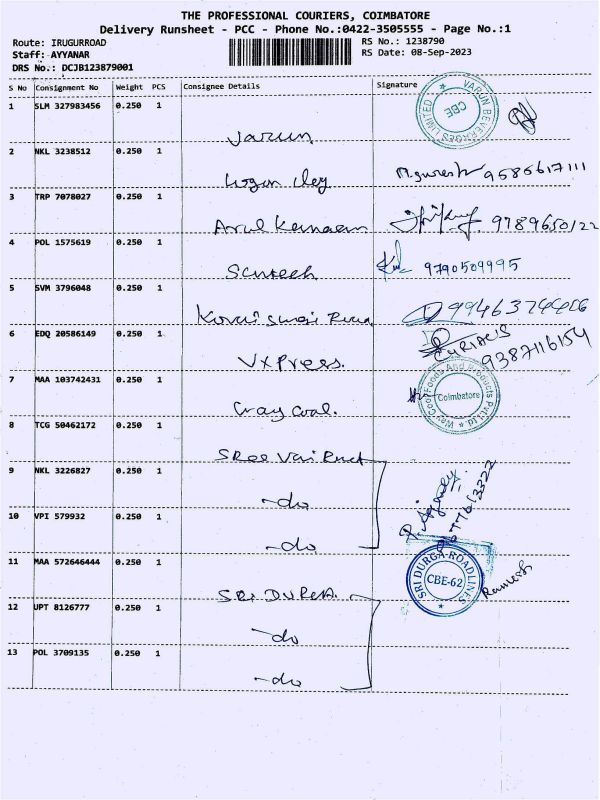 THE PROFESSIONAL COURIERS, COIMBATORE
Delivery Runsheet - PCC - Phone No.:0422-3505555 - Page No.:1
Route: IRUGURROAD
RS No.: 1238790
Staff: AYYANAR
RS Date: 08-Sep-2023
DRS No.: DCJB123879001
S No Consignment No Weight PCS Consignee Details Signature
1 SLM 327983456 0.250 1 Varun
VARUN BEVERAGES LIMITED
CBE
2 NKL 3238512 0.250 1
M.Suresh 9585617111
3 TRP 7078027 0.250 1 Arul
9789650122
4 POL 1575619 0.250 1
9790509995
5 SVM 3796048 0.250 1
6 EDQ 20586149 0.250 1 VXPress.
9387116154
7 MAA 103742431 0.250 1
Way Cool Foods And Products Pvt.Ltd.
Coimbatore
8 TCG 50462172 0.250 1 SRee
9 NKL 3226827 0.250 1 -do
10 VPI 579932 0.250 1 -do
11 MAA 572646444 0.250 1 SRI DURGA.
SRI DURGA ROADLINES
CBE-62
Ramesh
12 UPT 8126777 0.250 1 -do
13 POL 3709135 0.250 1 -do